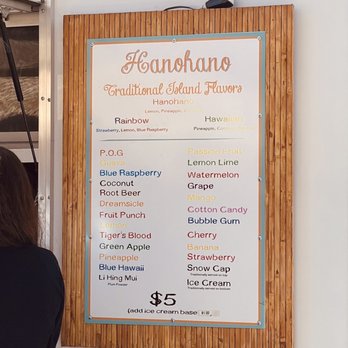 Hanohano
Traditional Island Flavors
Hanohano
Lemon, Pineapple,
Rainbow
Strawberry, Lemon, Blue Raspberry
Hawaiian
Pineapple,
P.O.G
Guava
Blue Raspberry
Coconut
Root Beer
Dreamsicle
Fruit Punch
Lemon
Tiger's Blood
Green Apple
Pineapple
Blue Hawaii
Li Hing Mui
Plum Powder
Passion Fruit
Lemon Lime
Watermelon
Grape
Mango
Cotton Candy
Bubble Gum
Cherry
Banana
Strawberry
Snow Cap
Traditionally served on top
Ice Cream
Traditionally served on bottom
$5
(add ice cream base